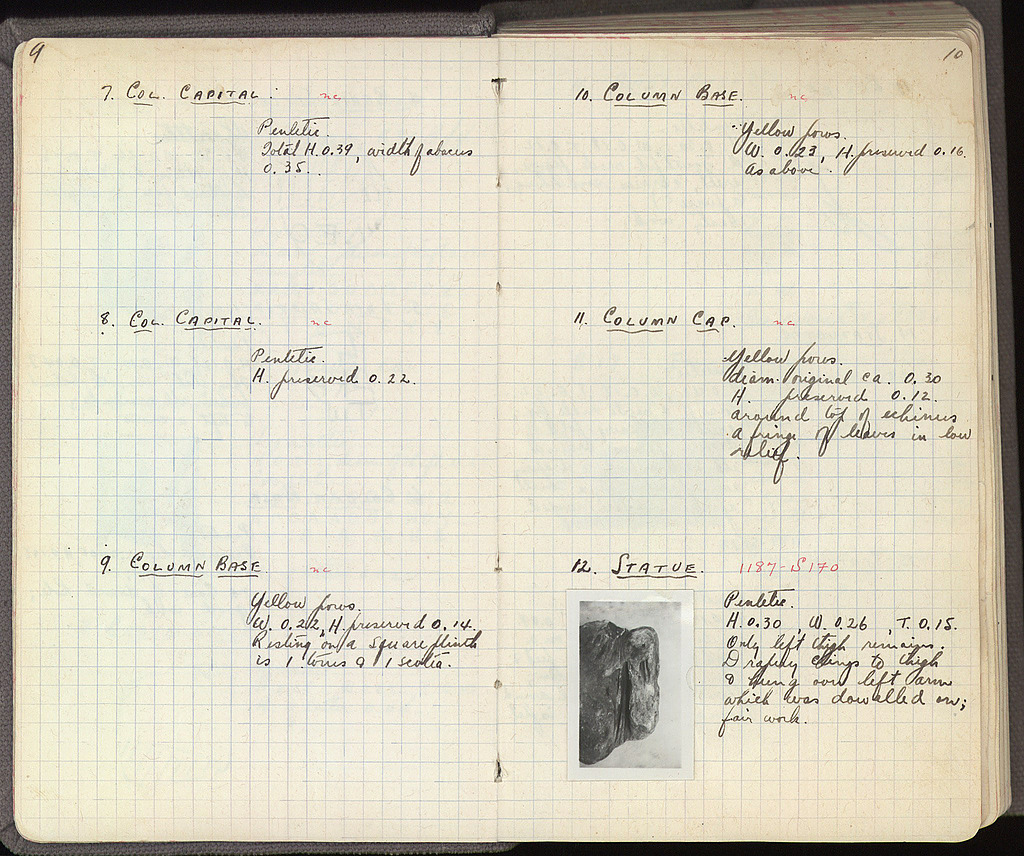 9
7. COL. CAPITAL. nc
Pentelic.
Total H. 0.39, width of abacus
0.35.
8. COL. CAPITAL. nc
Pentelic.
H. preserved 0.22.
9. COLUMN BASE. nc
Yellow poros.
W. 0.22, H. preserved 0.14.
Resting on a square plinth
is 1 torus & 1 scotia.
10
10. COLUMN BASE. nc
Yellow poros.
W. 0.23, H. preserved 0.16.
As above.
11. COLUMN CAP. nc
Yellow poros.
diam. original ca. 0.30
H. preserved 0.12.
around top of echinus
a fringe of leaves in low
relief.
12. STATUE. 1187-S 170
Pentelic.
H. 0.30, W. 0.26, T. 0.15.
Only left thigh remains.
Drapery clings to thigh
& hung over left arm
which was dowelled on;
fair work.